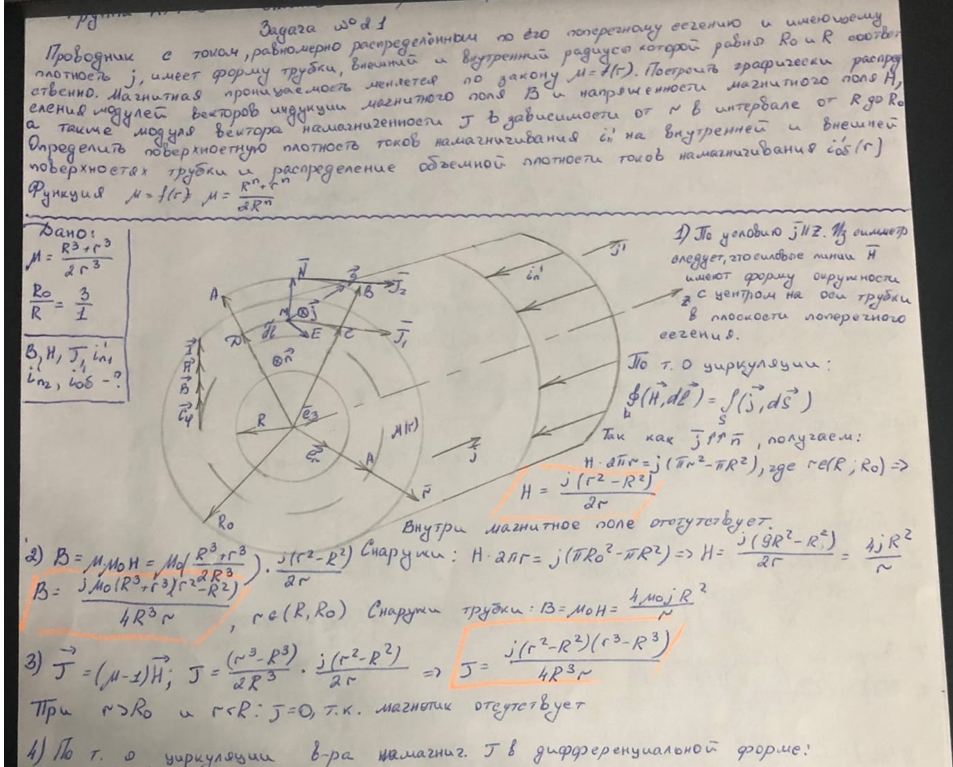 Задача №2.1
Проводник с током, равномерно распределённым по его поперечному сечению и имеющему
плотность j, имеет форму трубки, внешний и внутренний радиусы которой равны R₀ и R соответ
ственно. Магнитная проницаемость меняется по закону μ=f(r). Построить графически распред
еления модулей векторов индукции магнитного поля B и напряженности магнитного поля H,
а также модуля вектора намагниченности J в зависимости от r в интервале от R до R₀
Определить поверхностную плотность токов намагничивания i'п на внутренней и внешней
поверхностях трубки и распределение объемной плотности токов намагничивания i'об(r)
Функция μ=f(r) μ = (Rⁿ+rⁿ)/(2Rⁿ)
Дано:
μ = (R³+r³)/(2r³)
R₀/R = 3/1
B, H, J, i'п₁
i'п₂, i'об - ?
1) По условию j||Z. Из симметр
следует, что силовые линии H
имеют форму окружности
с центром на оси трубки
в плоскости поперечного
сечения.
По т. о циркуляции:
∮(H,dl) = ∫(j,ds)
Так как j↑↑n, получаем:
H·2πr=j(πr²-πR²), где r∈(R;R₀) =>
H = j(r²-R²)/(2r)
Внутри магнитное поле отсутствует.
2) B=μμ₀H = μ₀((R³+r³)/(2R³))·j(r²-R²)/(2r)
Снаружи: H·2πr= j(πR₀²-πR²) => H= j(9R²-R²)/(2r) = 4jR²/r
B= jμ₀(R³+r³)(r²-R²)/(4R³r), r∈(R,R₀) Снаружи трубки: B=μ₀H= 4μ₀jR²/r
3) J=(μ-1)H; J= (r³-R³)/(2R³)·j(r²-R²)/(2r) => J= j(r²-R²)(r³-R³)/(4R³r)
При r>R₀ и r<R: j=0, т.к. магнетик отсутствует
4) По т. о циркуляции в-ра намагнич. J в дифференциальной форме: